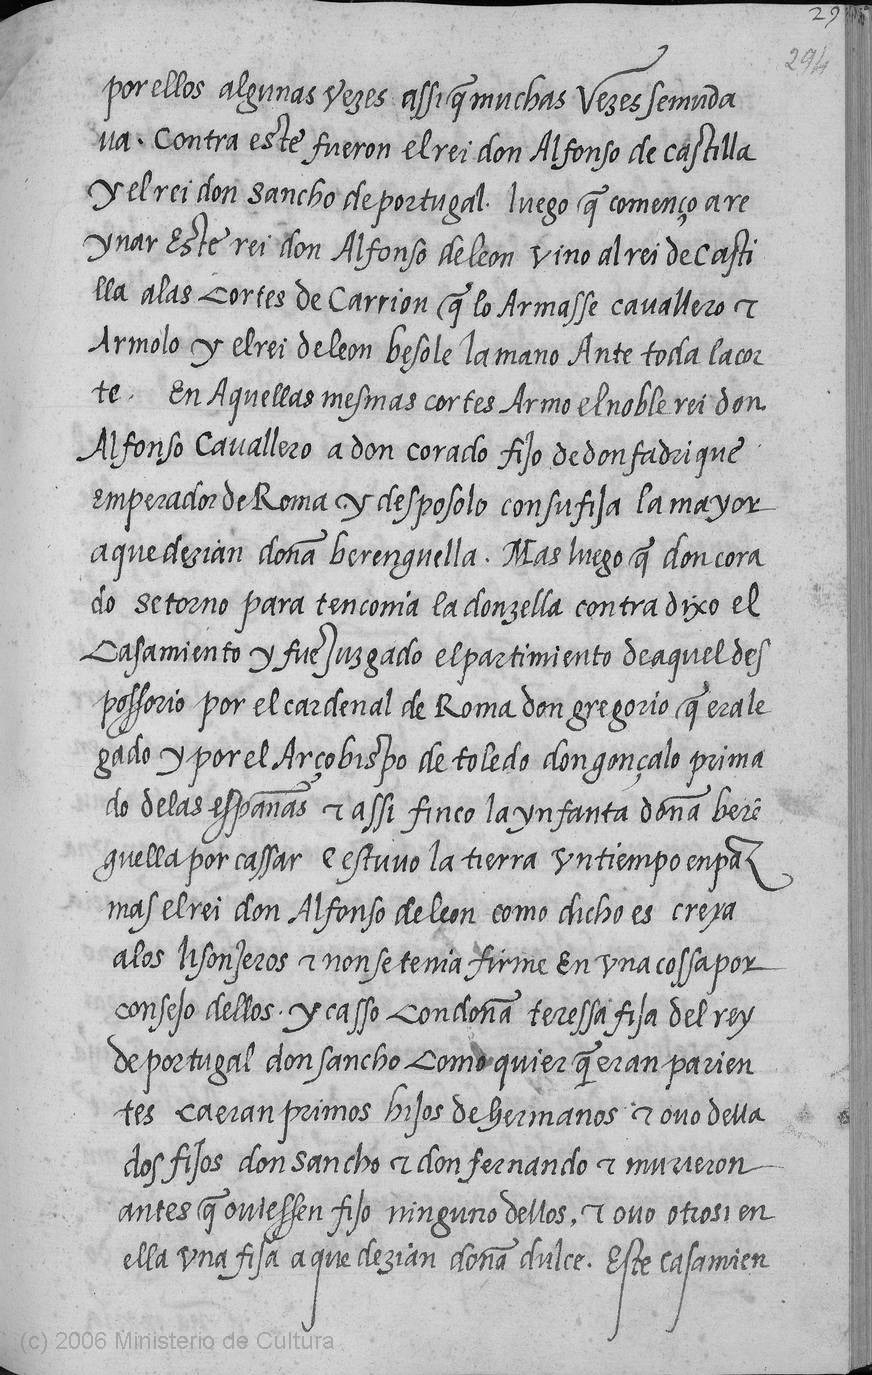 29
294
por ellos algunas vezes assi q̃ muchas vezes semuda
ua. Contra este fueron el rei don Alfonso de castilla
y el rei don Sancho de portugal. luego q̃ començo a re
ynar Este rei don Alfonso de leon vino al rei de Casti
lla alas Cortes de Carrion q̃ lo Armasse cauallero τ
Armolo y el rei de leon besole la mano Ante toda la cor
te. En Aquellas mesmas cortes Armo el noble rei don
Alfonso Cauallero a don corado fijo de don fadrique
emperador de Roma y desposolo con su fija la mayor
a que dezian doña berenguella. Mas luego q̃ don cora
do se torno para tenconia la donzella contradixo el
Casamiento y fue Juzgado el partimiento de aquel des
possorio por el cardenal de Roma don gregorio q̃ era le
gado y por el Arçobispo de toledo don gonçalo prima
do delas españas τ assi finco la ynfanta doña berē
guella por cassar e estuuo la tierra vn tiempo en paz
mas el rei don Alfonso de leon como dicho es creya
alos lisonjeros τ non se tenia firme En vna cossa por
consejo dellos. y casso Con doña teressa fija del rey
de portugal don sancho Como quier q̃ eran parien
tes Ca eran primos hijos de hermanos τ ouo della
dos fijos don sancho τ don fernando τ murieron
antes q̃ ouiessen fijo ninguno dellos, τ ouo otrosi en
ella vna fija a que dezian doña dulce. Este Casamien
(c) 2006 Ministerio de Cultura